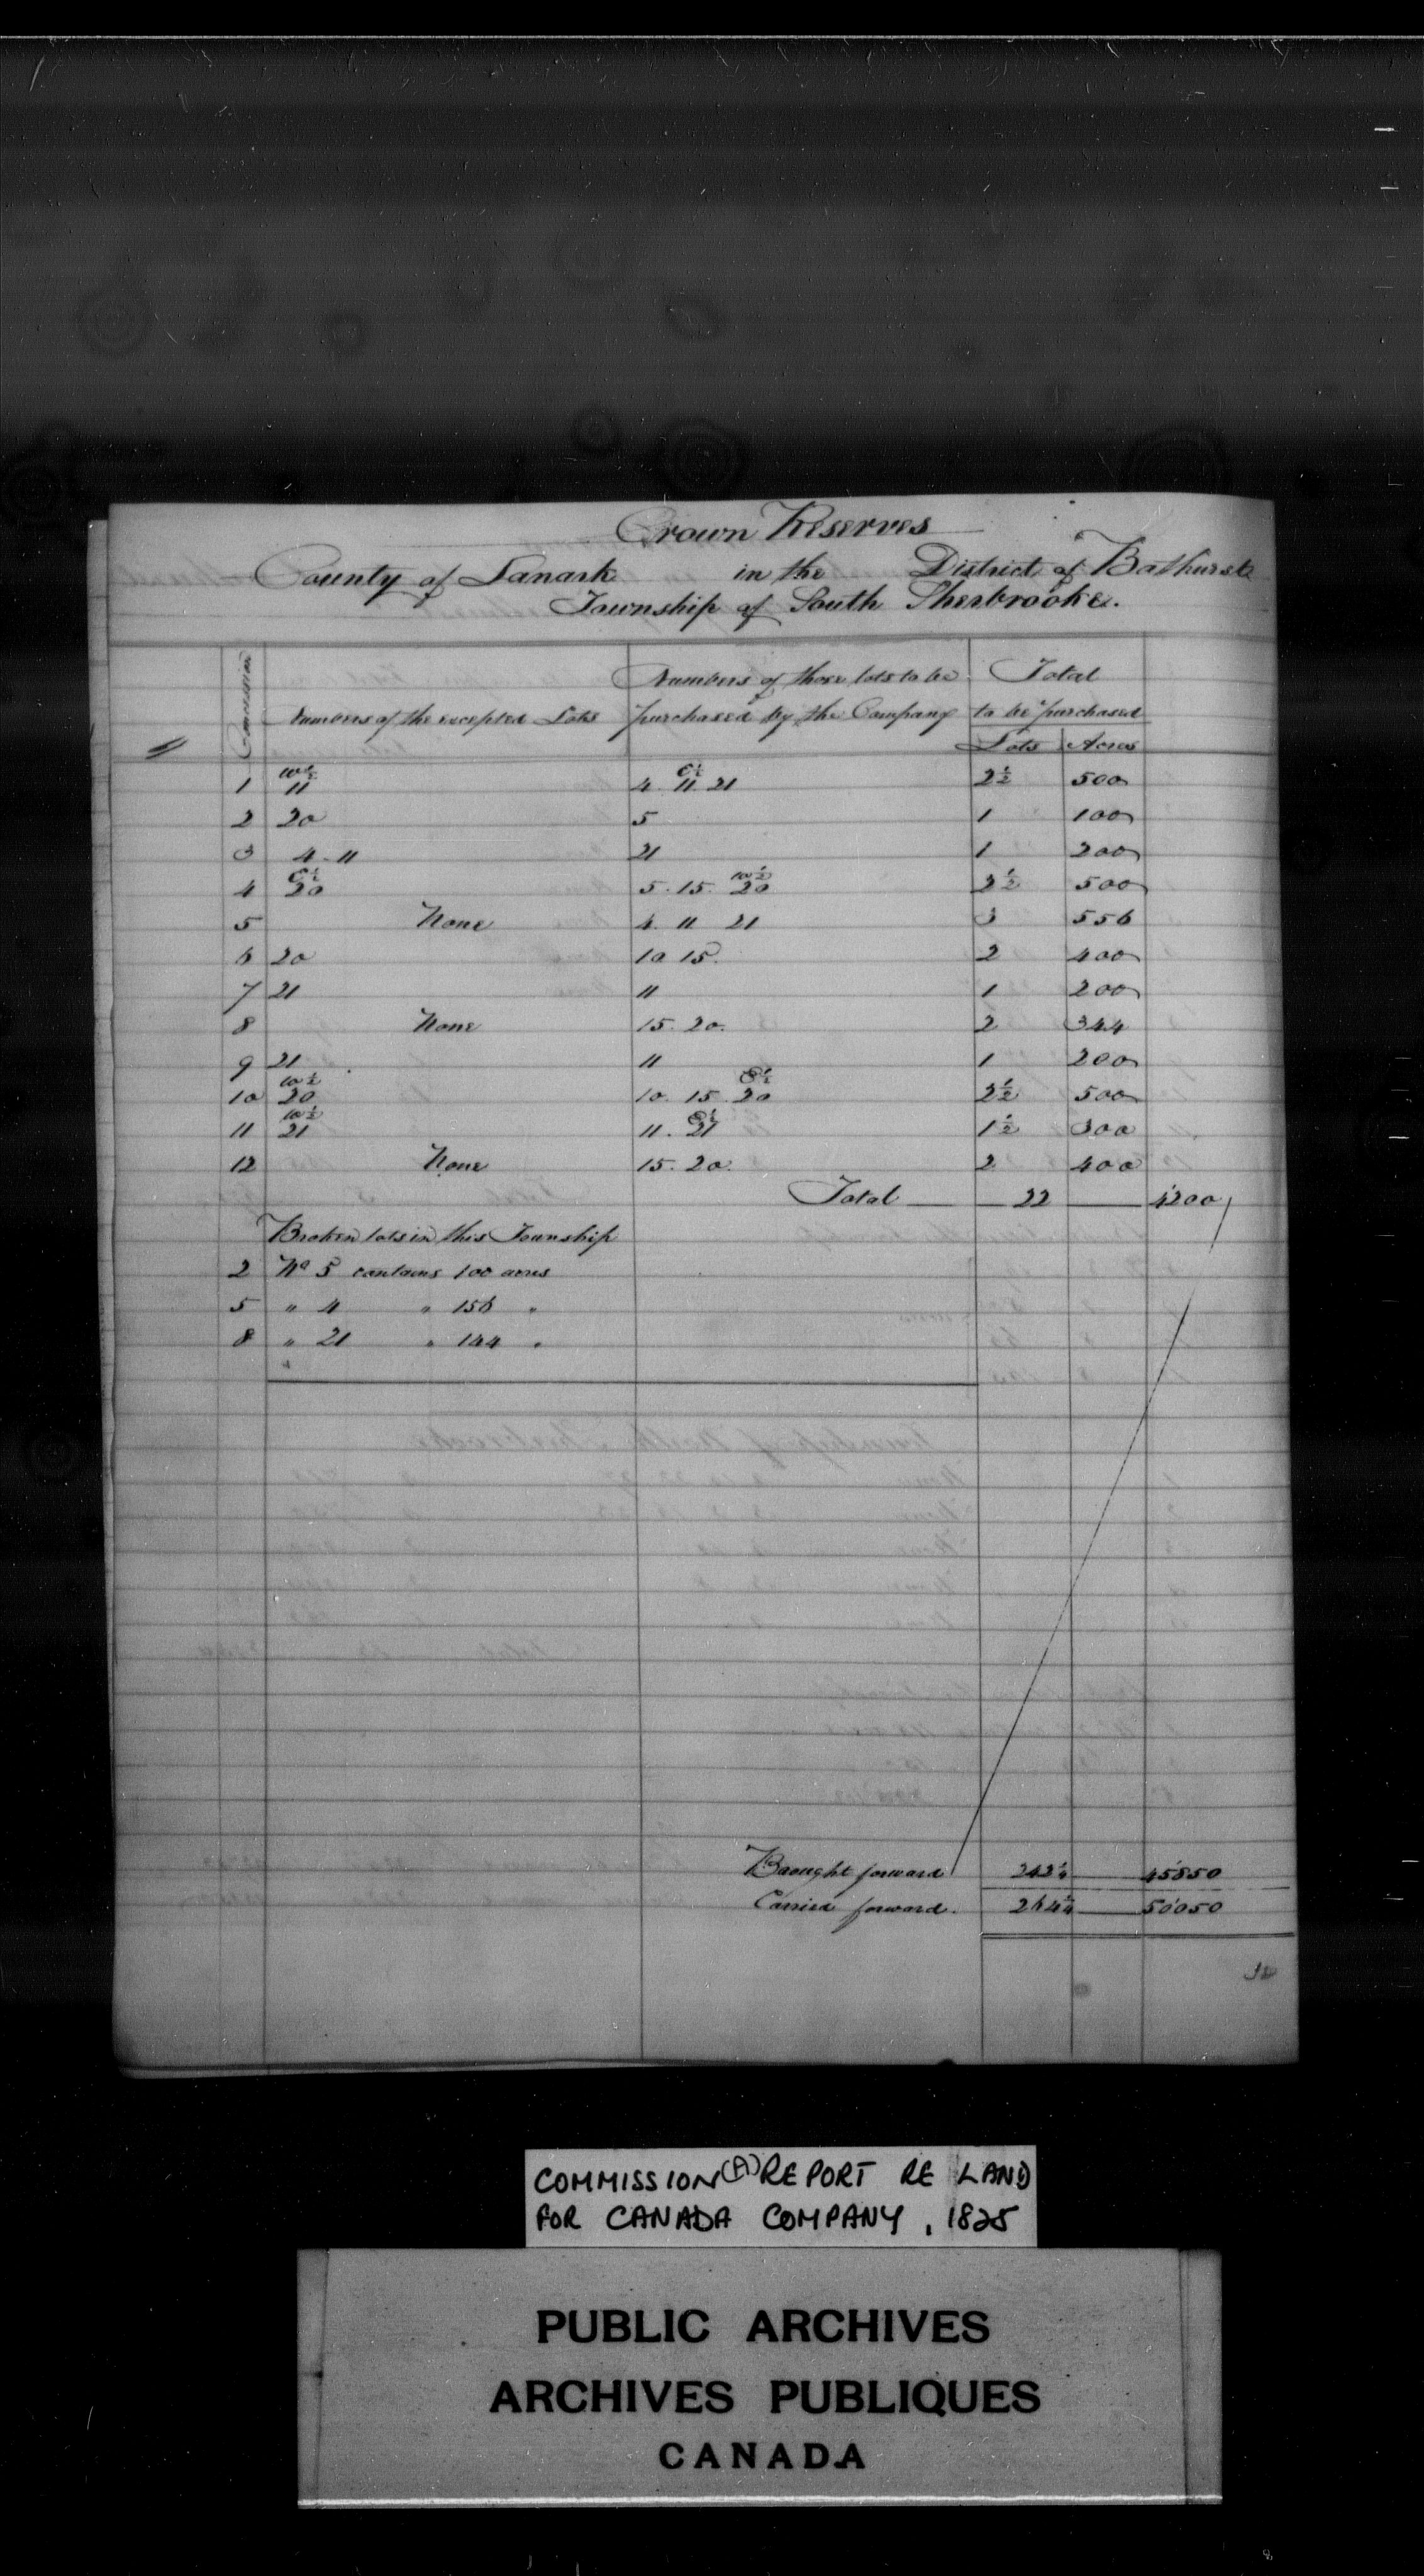 Crown Reserves
County of Lanark in the District of Bathurst
Township of South Sherbrooke.
Concession
Numbers of the excepted Lots
Numbers of those lots to be purchased by the Company
Total to be purchased
Lots Acres
1 W½ 11 4. E½ 11 21 2½ 500
2 20 5 1 100
3 4 - 11 21 1 200
4 E½ 20 5. 15. W½ 20 2½ 500
5 None 4. 11 21 3 556
6 20 10 15. 2 400
7 21 11 1 200
8 None 15. 20. 2 344
9 21 11 1 200
10 W½ 20 10. 15. E½ 20 2½ 500
11 W½ 21 11. E½ 21 1½ 300
12 None 15. 20. 2 400
Total 22 4200
Broken lots in this Township
2 No 5 contains 100 acres
5 " 4 " 156 "
8 " 21 " 144 "
Brought forward 45850
Carried forward. 50050
COMMISSION (A) REPORT RE LAND
FOR CANADA COMPANY, 1825
PUBLIC ARCHIVES
ARCHIVES PUBLIQUES
CANADA